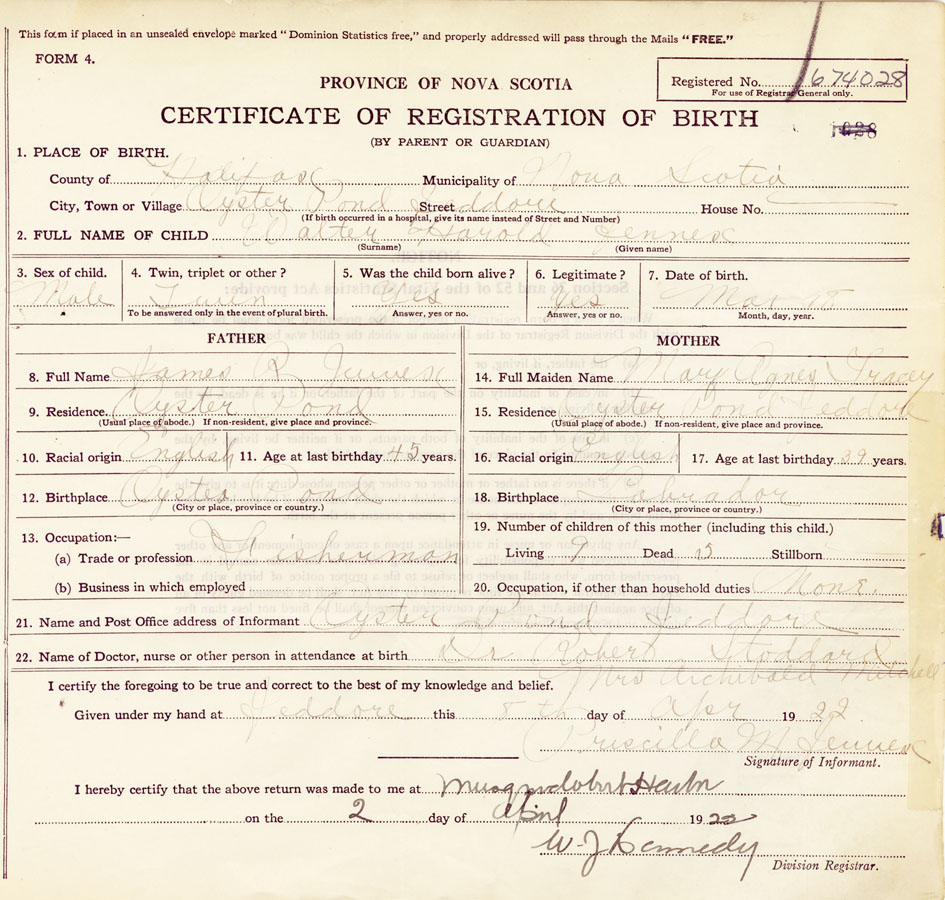 This form if placed in an unsealed envelope marked "Dominion Statistics free," and properly addressed will pass through the Mails "FREE."
FORM 4.
PROVINCE OF NOVA SCOTIA
Registered No. 674028
For use of Registrar General only.
CERTIFICATE OF REGISTRATION OF BIRTH
(BY PARENT OR GUARDIAN)
1. PLACE OF BIRTH.
County of Halifax Municipality of Nova Scotia
City, Town or Village Oyster Pond Jeddore Street House No.
(If birth occurred in a hospital, give its name instead of Street and Number)
2. FULL NAME OF CHILD Walter Harold Jennex
(Surname) (Given name)
3. Sex of child. 4. Twin, triplet or other? 5. Was the child born alive? 6. Legitimate? 7. Date of birth.
Male Twin Yes Yes Mar 18
To be answered only in the event of plural birth. Answer, yes or no. Answer, yes or no. Month, day, year.
FATHER
8. Full Name James R Jennex
9. Residence Oyster Pond
(Usual place of abode.) If non-resident, give place and province.
10. Racial origin English 11. Age at last birthday 45 years.
12. Birthplace Oyster Pond
(City or place, province or country.)
13. Occupation:—
(a) Trade or profession Fisherman
(b) Business in which employed
MOTHER
14. Full Maiden Name Mary Agnes Tracey
15. Residence Oyster Pond Jeddore
(Usual place of abode.) If non-resident, give place and province.
16. Racial origin English 17. Age at last birthday 39 years.
18. Birthplace Labrador
(City or place, province or country.)
19. Number of children of this mother (including this child.)
Living 9 Dead 5 Stillborn
20. Occupation, if other than household duties None.
21. Name and Post Office address of Informant Oyster Pond Jeddore
22. Name of Doctor, nurse or other person in attendance at birth Dr Robert Stoddard
Mrs Archibald Mitchell
I certify the foregoing to be true and correct to the best of my knowledge and belief.
Given under my hand at Jeddore this 8th day of Apr 1922
Priscilla M Jennex
Signature of Informant.
I hereby certify that the above return was made to me at
on the 2 day of April 1922
W. J Kennedy
Division Registrar.